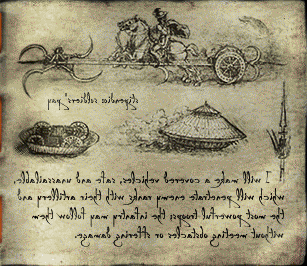 stipendio soldiers' pay
I will make a covered vehicles, safe and unassailable,
which will penetrate enemy ranks with their artillery and
the most powerful troops the infantry may follow them
without meeting obstacles or damage.